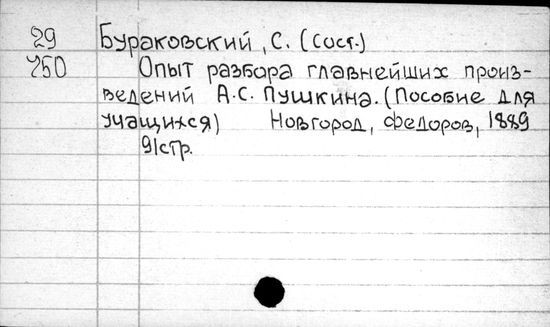 29 Бураковский, С. (сост.)
750 Опыт разбора главнейших произ-
ведений А.С. Пушкина. (Пособие для
учащихся) Новгород, Федоров, 1889
91стр.